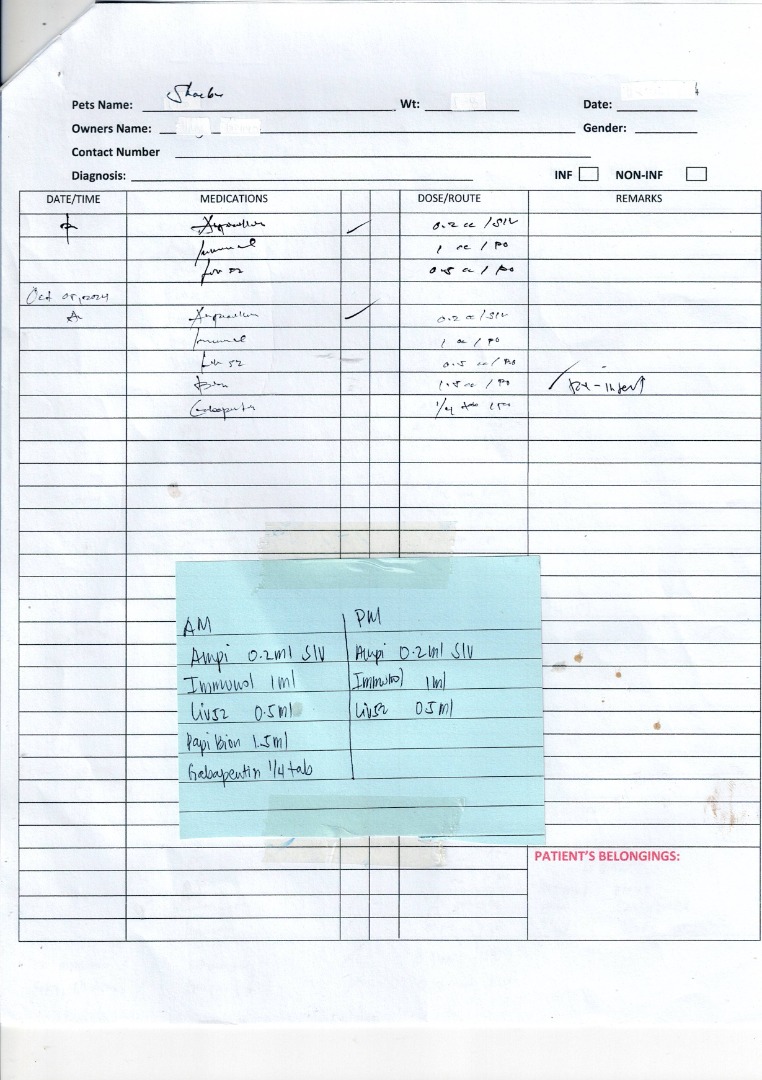 Pets Name: Wt: Date:
Owners Name: Gender:
Contact Number
Diagnosis: INF NON-INF
DATE/TIME MEDICATIONS DOSE/ROUTE REMARKS
0.2 cc / SIV
1 cc / PO
Liv 52 0.5 cc / PO
Oct 05, 2024
0.2 cc / SIV
1 cc / PO
Liv 52 0.5 cc / PO
1.5 cc / PO
Gabapentin 1/4 tab / PO
AM PM
Ampi 0.2ml SIV Ampi 0.2ml SIV
Immunol 1ml Immunol 1ml
Liv52 0.5ml Liv52 0.5ml
Papi Bion 1.5ml
Gabapentin 1/4 tab
PATIENT'S BELONGINGS: